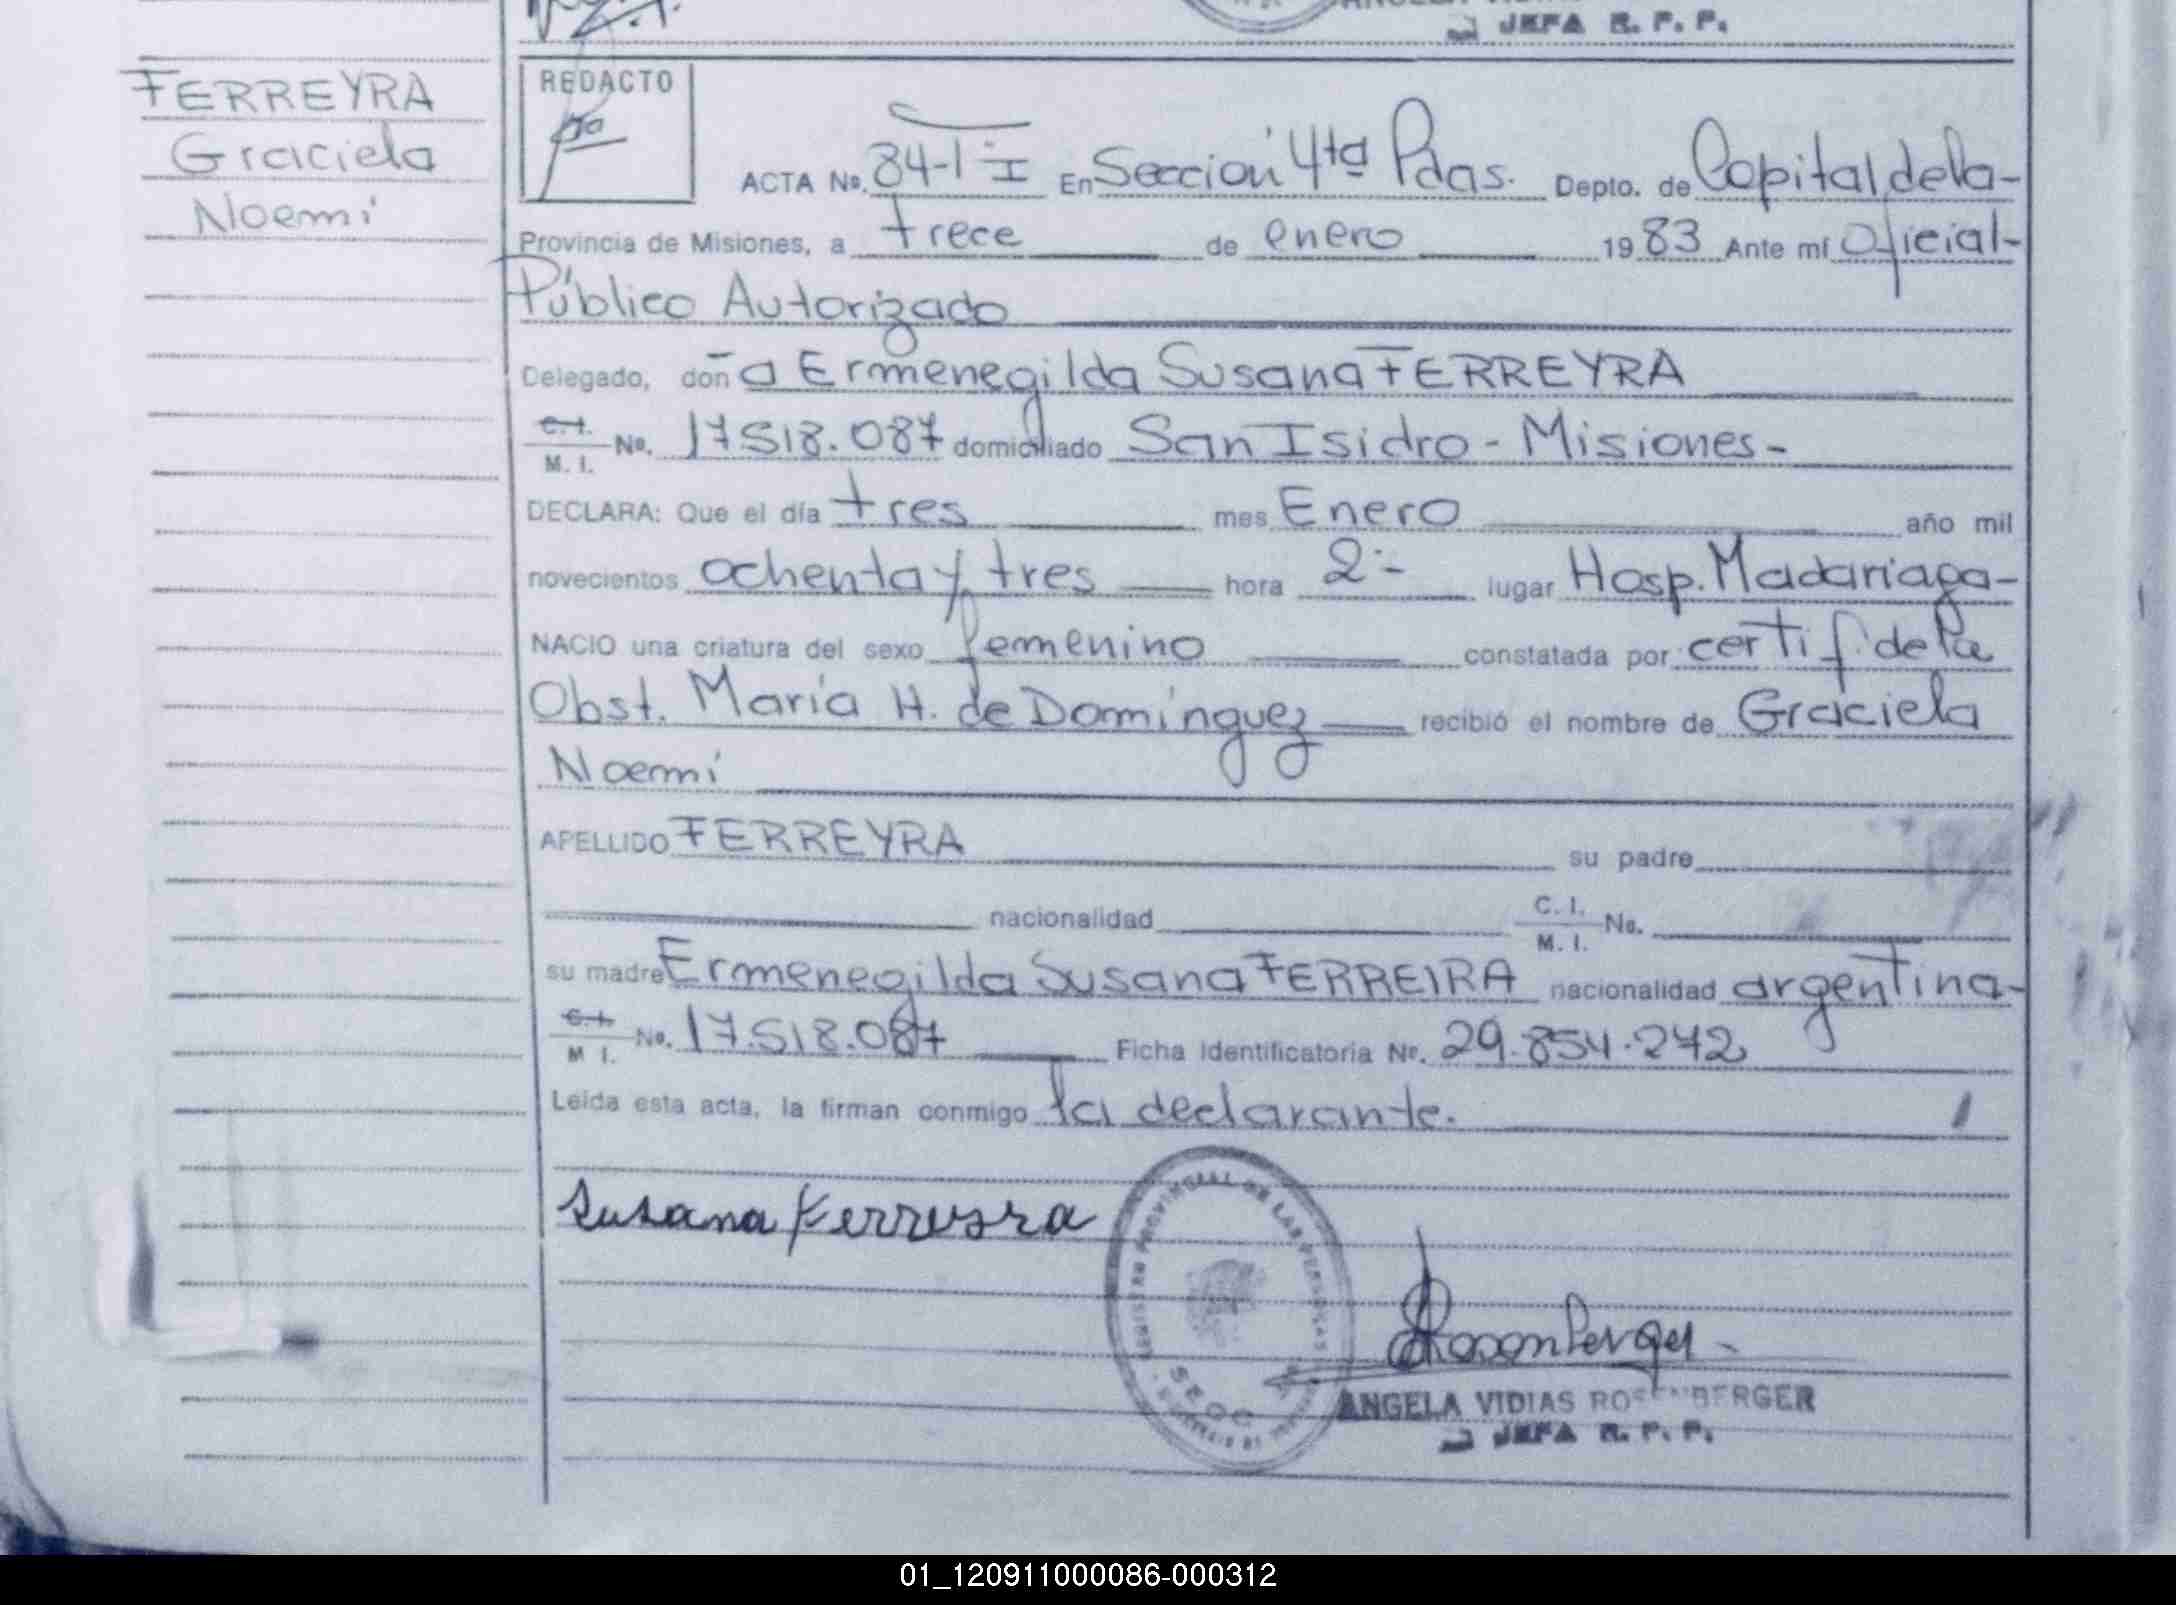 JEFA R. P. P.
FERREYRA
Graciela
Noemí
REDACTO
ACTA No. 84-1-I En Sección 4ta Pdas. Depto. de Capital de la-
Provincia de Misiones, a trece de enero 1983 Ante mí Oficial-
Público Autorizado
Delegado, doña Ermenegilda Susana FERREYRA
C. I.
M. I. No. 17518.087 domiciliado San Isidro - Misiones-
DECLARA: Que el día tres mes Enero año mil
novecientos ochenta y tres hora 2:- lugar Hosp. Madariaga-
NACIO una criatura del sexo femenino constatada por certif. de la
Obst. María H. de Domínguez recibió el nombre de Graciela
Noemí
APELLIDO FERREYRA su padre
nacionalidad C. I. M. I. No.
su madre Ermenegilda Susana FERREIRA nacionalidad argentina-
C. I.
M. I. No. 17.518.087 Ficha Identificatoria No. 29.854.242
Leída esta acta, la firman conmigo la declarante.
Susana Ferreyra
PROVINCIAL DE LAS PERSONAS
Rosenberger
ANGELA VIDIAS ROSENBERGER
JEFA R. P. P.
01_120911000086-000312